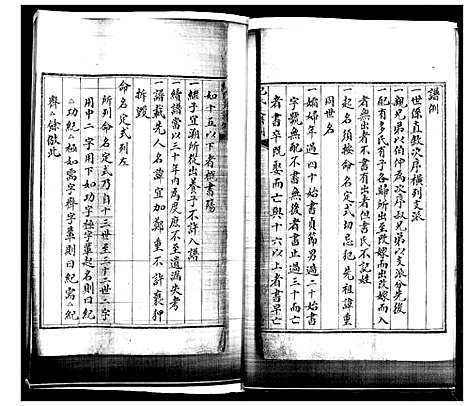 譜例
一世係直敘次序橫列支派
一親兄弟以伯仲為次序叔兄弟以支派分先後
一配有多氏有子各歸所出至改嫁而出改嫁入
者無出者不書有出者但書氏不記姓
一起名須按命名定式切忌犯先祖諱重
同世名
一孀婦年過四十始書貞節男過二十始書
字號無配不書無後者書止過三十而亡
者書卒既娶而亡與十六以上者書早亡
如十五以下者概書殤
一繼子宜溯所從出養子不許入譜
一續譜當以三十年內為度庶不至遺漏失考
一譜載先人名諱宜加鄭重不許褻狎
拆毀
命名定式列左
所列命名定式乃自十三世至三十二世二字
用中二字用下如功字極字輩起名則曰紀
功紀極如寯字齊字輩則曰紀寯紀
齊餘倣此